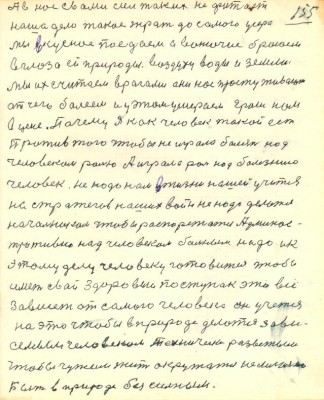 155
А в нас своими сил таких не хватает
наше дело такое жрать до самого горе
мы вкусное поедаем а вонючие бросаем
в глаза ей природы. воздуху воды и земли.
Мы их считаем врагами они нас простуживают
от чего болеем и у этом умераем грош нам
в цене. Почему я как человек такой есть
Против того чтобы не играла болезнь над
человеком роль А играла роль над болезнию
человек. не надо нам в жизни нашей учится
на стратегов наших войн не надо делатся
начальником чтобы распоряжатся Админис-
тративно над человеком больным надо их
этому делу человеку готовится чтобы
иметь свай Здоровый поступак это всё
Зависит от самого человека он учется
на это чтобы в природе делатся зави-
семым человеком технически развитым
чтобы чужем жить окружать
быть в природе без сильным.